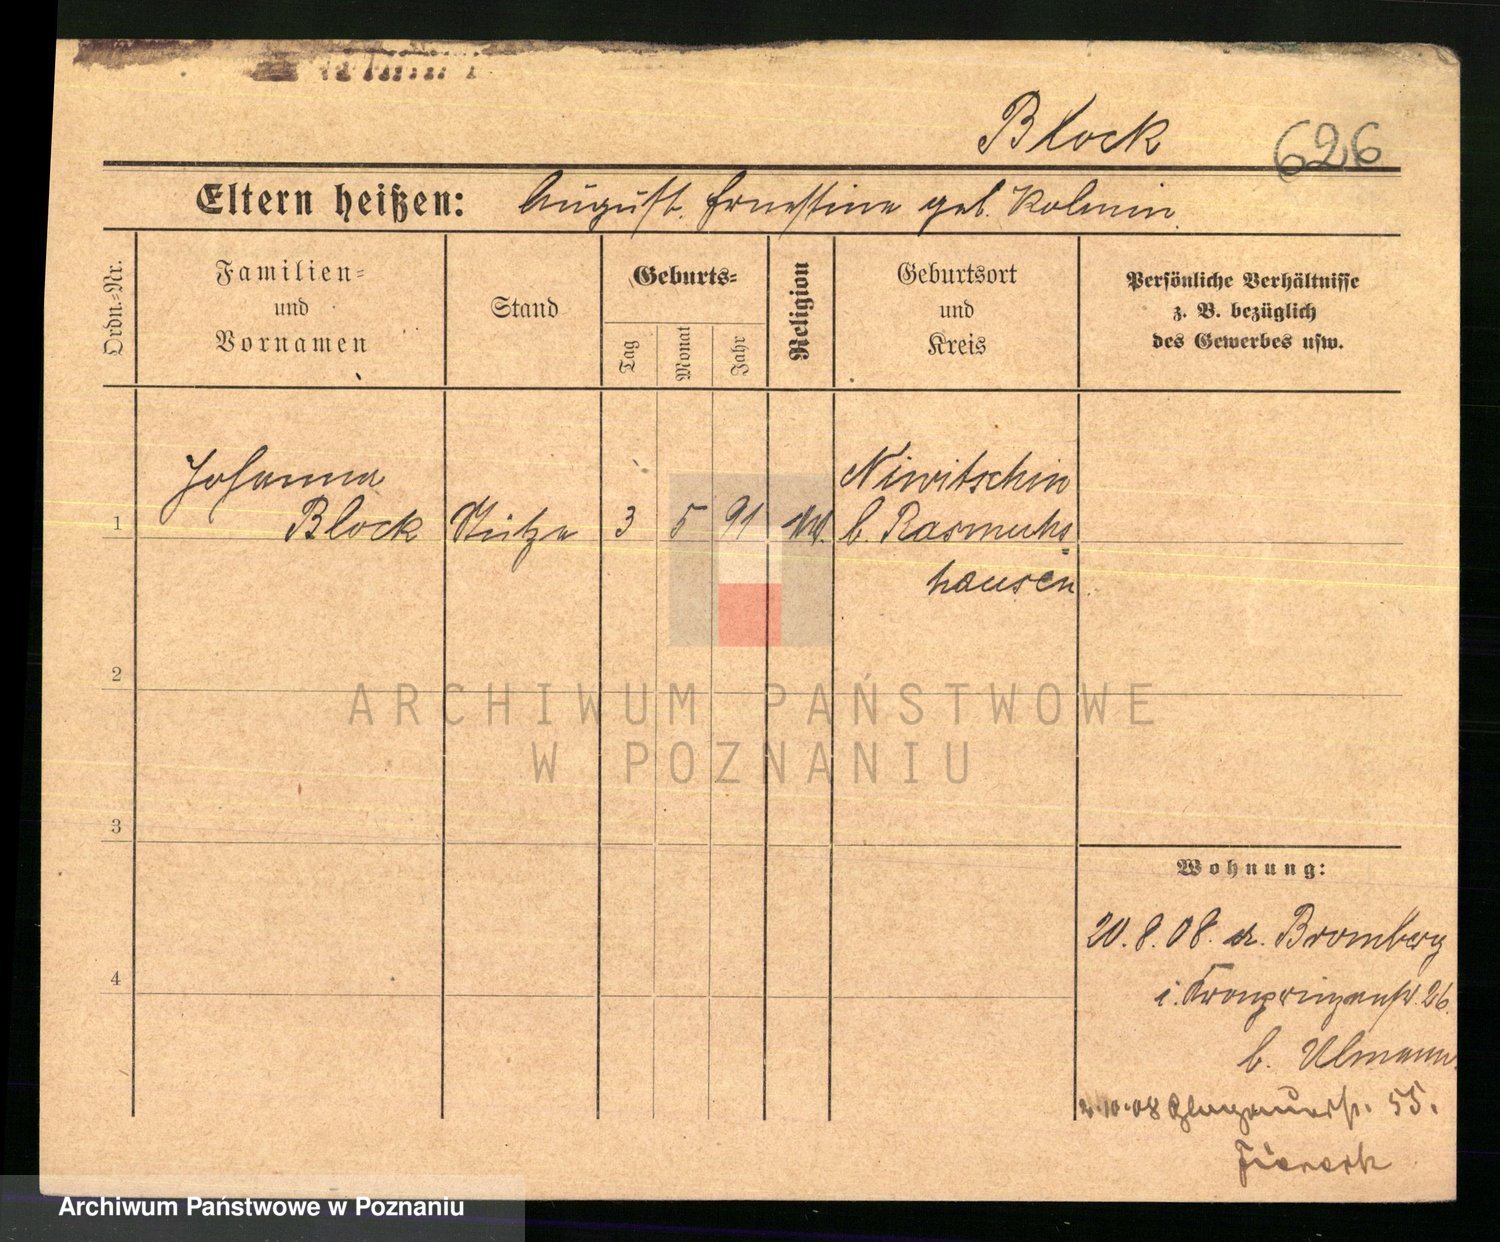 Block 626
Eltern heißen: August. Ernestine geb. Kolmin
Ordn.-Nr.
Familien-
und
Vornamen
Stand
Geburts-
Tag
Monat
Jahr
Religion
Geburtsort
und
Kreis
Persönliche Verhältnisse
z. B. bezüglich
des Gewerbes usw.
Johanna
1 Block Stütze 3 5 91
Niwitschin
b. Rasmuhs
hausen
2
3
4
Wohnung:
20.8.08. a. Bromberg
i. Kronprinzenstr. 26.
b. Ulmann.
2.10.08 55.
ARCHIWUM PAŃSTWOWE
W POZNANIU
Archiwum Państwowe w Poznaniu